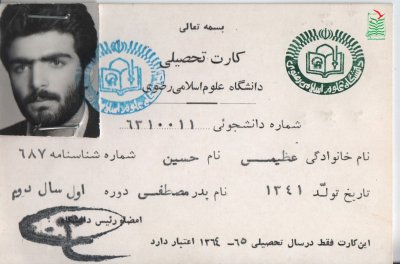 بسمه تعالی
کارت تحصیلی
دانشگاه علوم اسلامی رضوی
شماره دانشجوئی ۶۳۱۰۰۱۱
نام خانوادگی عظیمی نام حسین شماره شناسنامه ۶۸۷
تاریخ تولد ۱۳۴۱ نام پدر مصطفی دوره اول سال دوم
امضاء رئیس دانشگاه
این کارت فقط در سال تحصیلی ۶۵-۱۳۶۴ اعتبار دارد